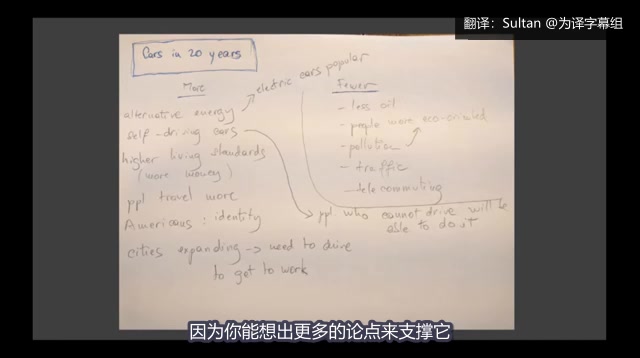 翻译：Sultan @为译字幕组
Cars in 20 years
More
alternative energy
electric cars popular
self-driving cars
higher living standards
(more money)
ppl travel more
Americans : identity
cities expanding → need to drive
to get to work
Fewer
- less oil
- people more eco-oriented
- pollution
- traffic
- telecommuting
ppl. who cannot drive will be
able to do it
因为你能想出更多的论点来支撑它